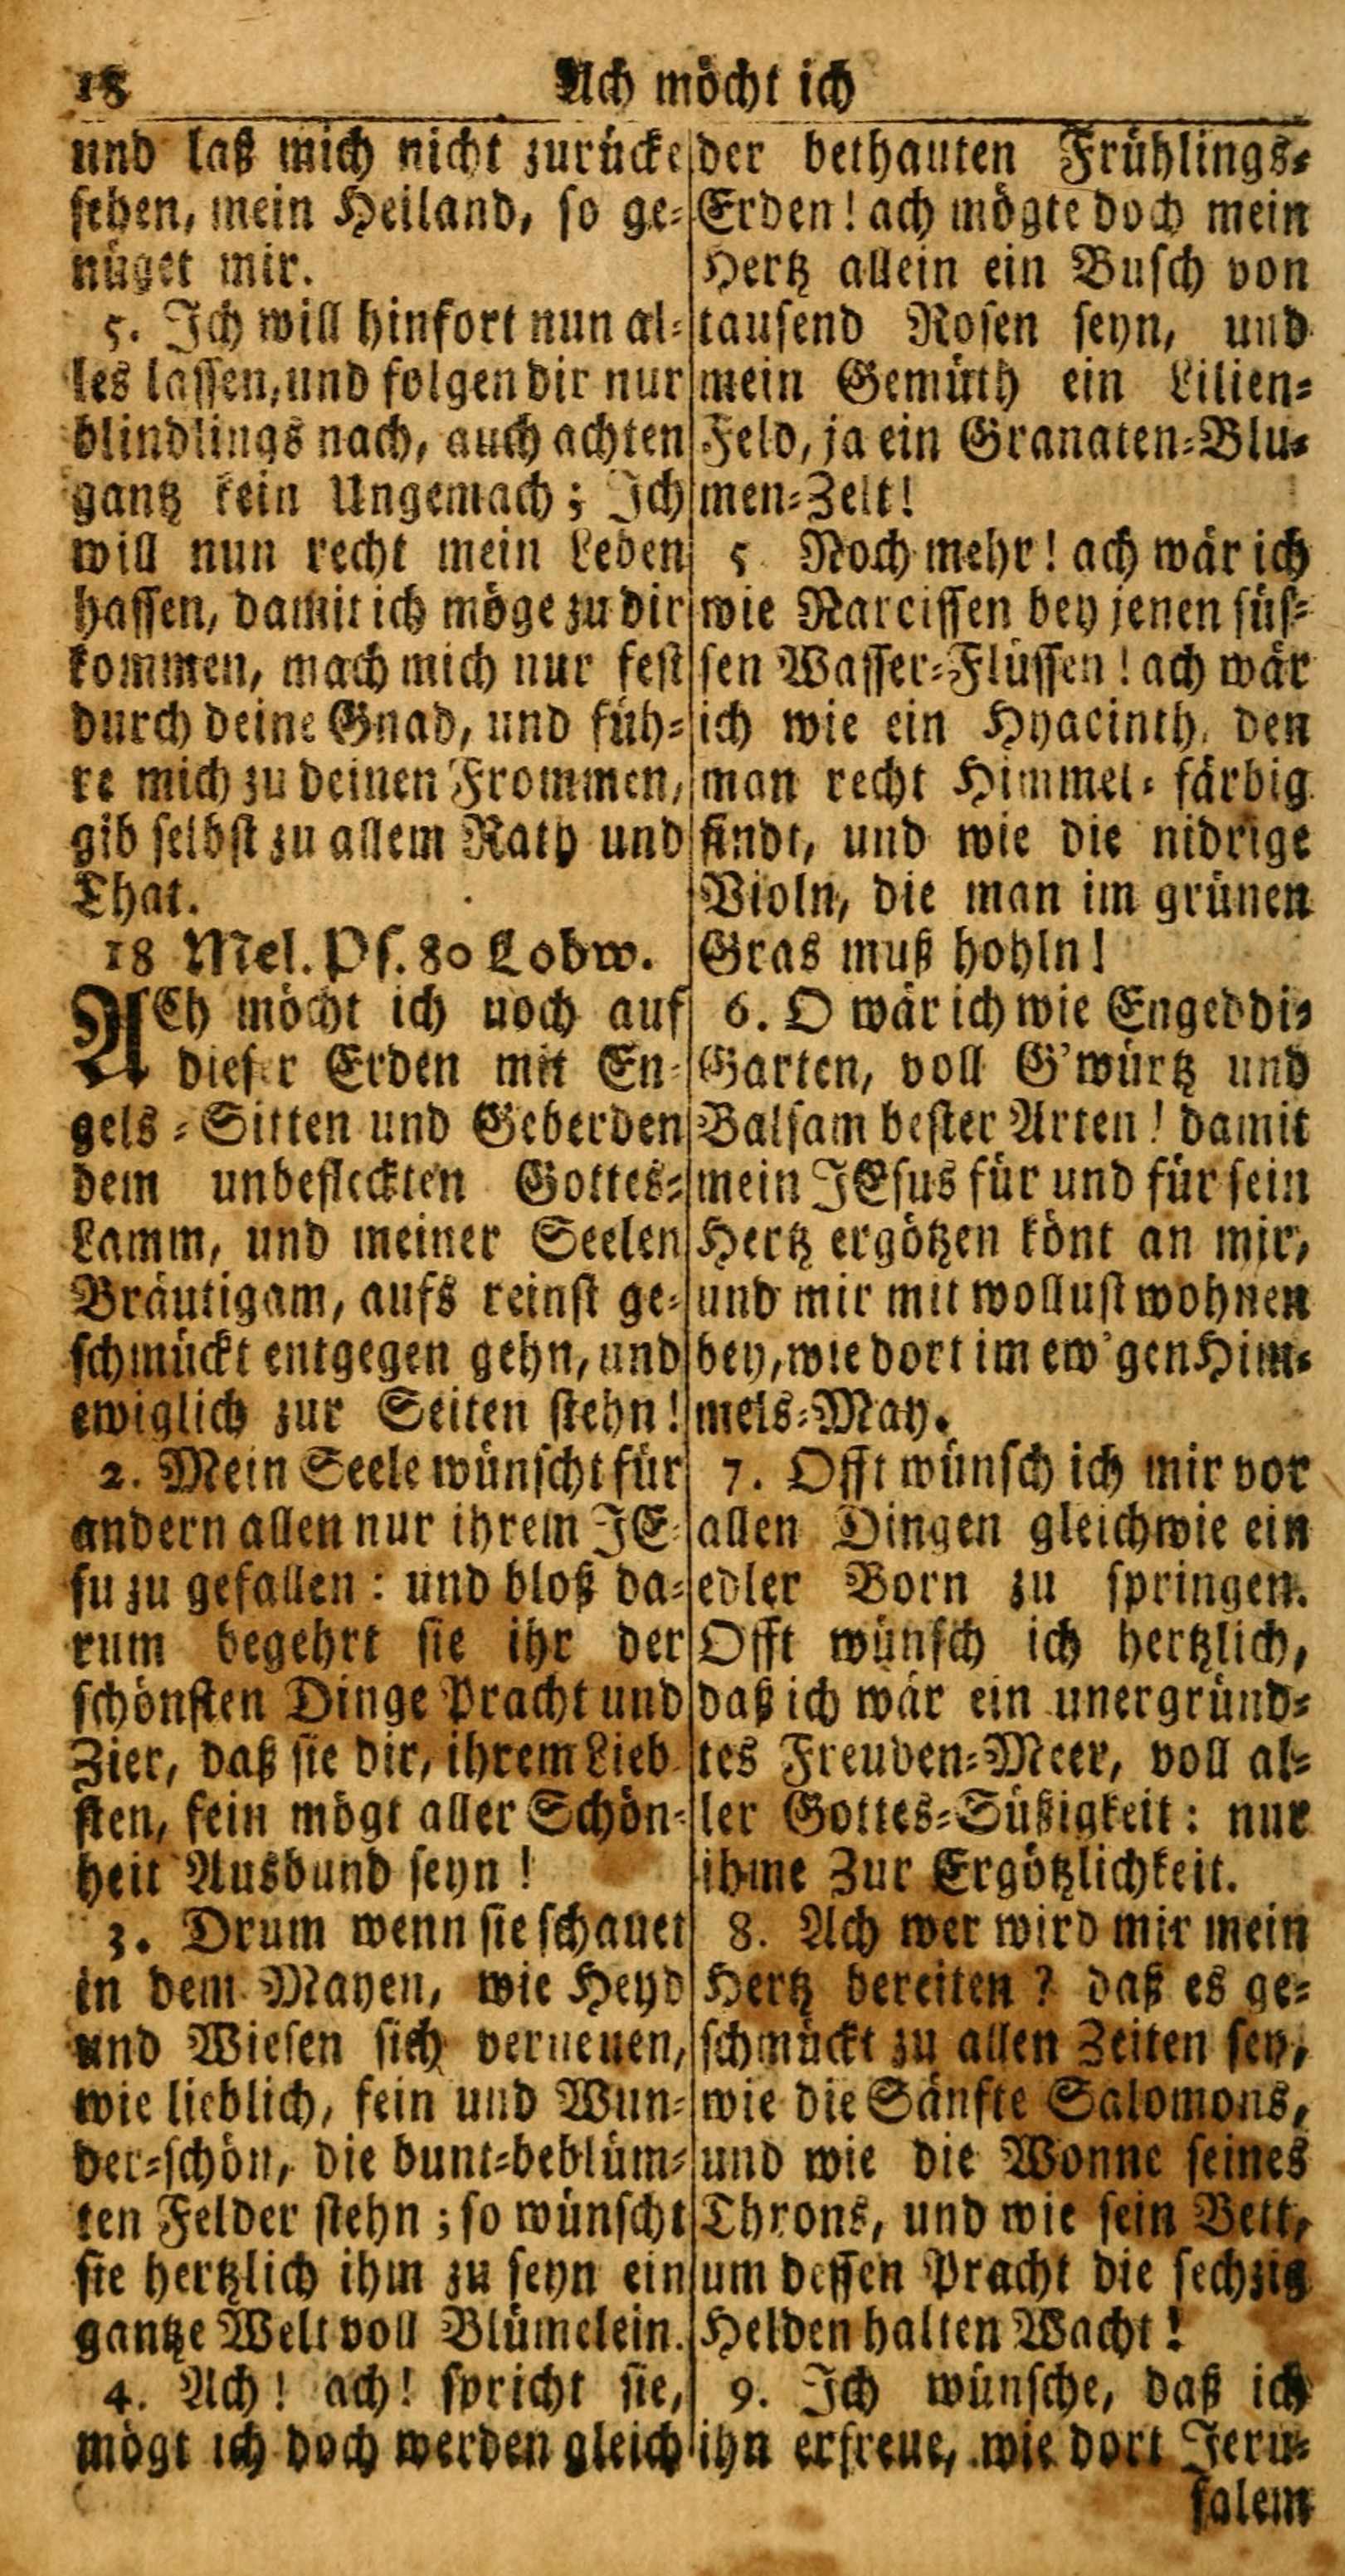 18
Ach möcht ich
und laß mich nicht zurücke
sehen, mein Heiland, so ge-
nüget mir.
5. Ich will hinfort nun al-
les lassen, und folgen dir nur
blindlings nach, auch achten
gantz kein Ungemach; Ich
will nun recht mein Leben
hassen, damit ich möge zu dir
kommen, mach mich nur fest
durch deine Gnad, und füh-
re mich zu deinen Frommen,
gib selbst zu allem Rath und
That.
18 Mel. Ps. 80 Lobw.
ACh möcht ich noch auf
dieser Erden mit En-
gels-Sitten und Geberden
dem unbefleckten Gottes-
Lamm, und meiner Seelen
Bräutigam, aufs reinst ge-
schmückt entgegen gehn, und
ewiglich zur Seiten stehn!
2. Mein Seele wünscht für
andern allen nur ihrem JE-
su zu gefallen: und bloß da-
rum begehrt sie ihr der
schönsten Dinge Pracht und
Zier, daß sie dir, ihrem Lieb-
sten, fein mögt aller Schön-
heit Ausbund seyn!
3. Drum wenn sie schauet
in dem Mayen, wie Heyd
und Wiesen sich verneuen,
wie lieblich, fein und Wun-
der-schön, die bunt-beblüm-
ten Felder stehn; so wünscht
sie hertzlich ihm zu seyn ein
gantze Welt voll Blümelein.
4. Ach! ach! spricht sie,
mögt ich doch werden gleich
der bethauten Frühlings-
Erden! ach mögte doch mein
Hertz allein ein Busch von
tausend Rosen seyn, und
mein Gemüth ein Lilien-
Feld, ja ein Granaten-Blu-
men-Zelt!
5 Noch mehr! ach wär ich
wie Narcissen bey jenen süs-
sen Wasser-Flüssen! ach wär
ich wie ein Hyacinth, den
man recht Himmel-färbig
findt, und wie die nidrige
Violn, die man im grünen
Gras muß hohln!
6. O wär ich wie Engeddi-
Garten, voll G'würtz und
Balsam bester Arten! damit
mein JEsus für und für sein
Hertz ergötzen könt an mir,
und mir mit wollust wohnen
bey, wie dort im ew'gen Him-
mels-May.
7. Offt wünsch ich mir vor
allen Dingen gleichwie ein
edler Born zu springen.
Offt wünsch ich hertzlich,
daß ich wär ein unergründ-
tes Freuden-Meer, voll al-
ler Gottes-Süßigkeit: nur
ihme Zur Ergötzlichkeit.
8. Ach wer wird mir mein
Hertz bereiten? daß es ge-
schmückt zu allen Zeiten sey,
wie die Sänfte Salomons,
und wie die Wonne seines
Throns, und wie sein Bett,
um dessen Pracht die sechzig
Helden halten Wacht!
9. Ich wünsche, daß ich
ihn erfreue, wie dort Jeru-
salem